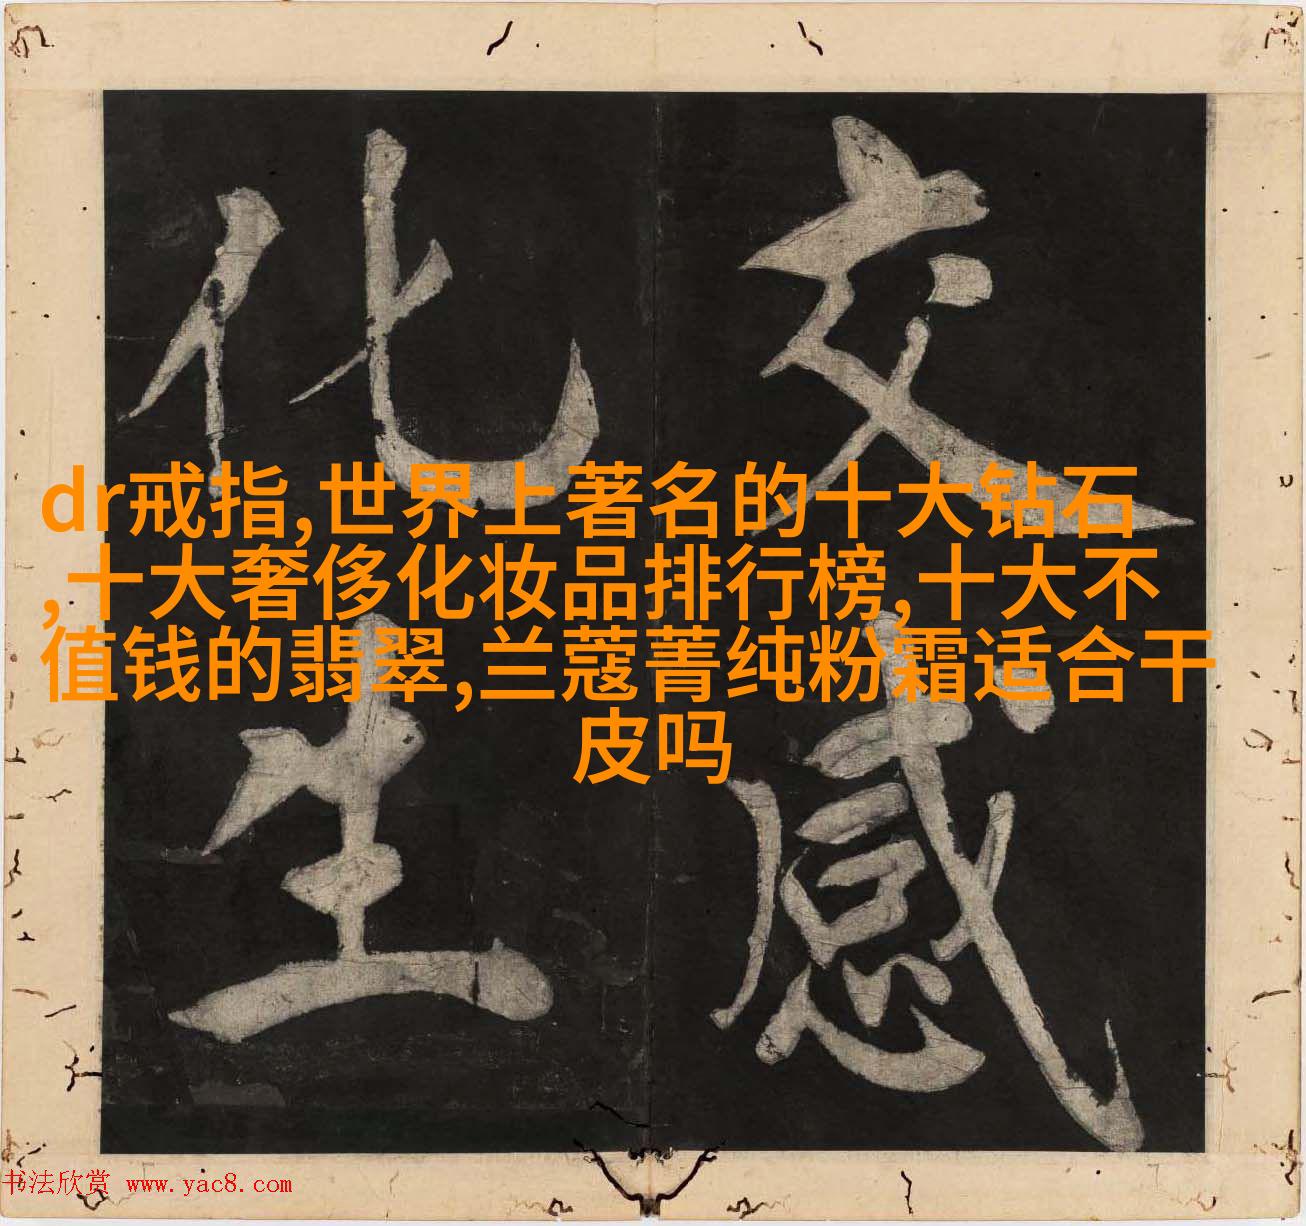 交感
化生
dr戒指,世界上著名的十大钻石
,十大奢侈化妆品排行榜,十大不
值钱的翡翠,兰蔻菁纯粉霜适合干
皮吗
书法欣赏 www.yac8.com